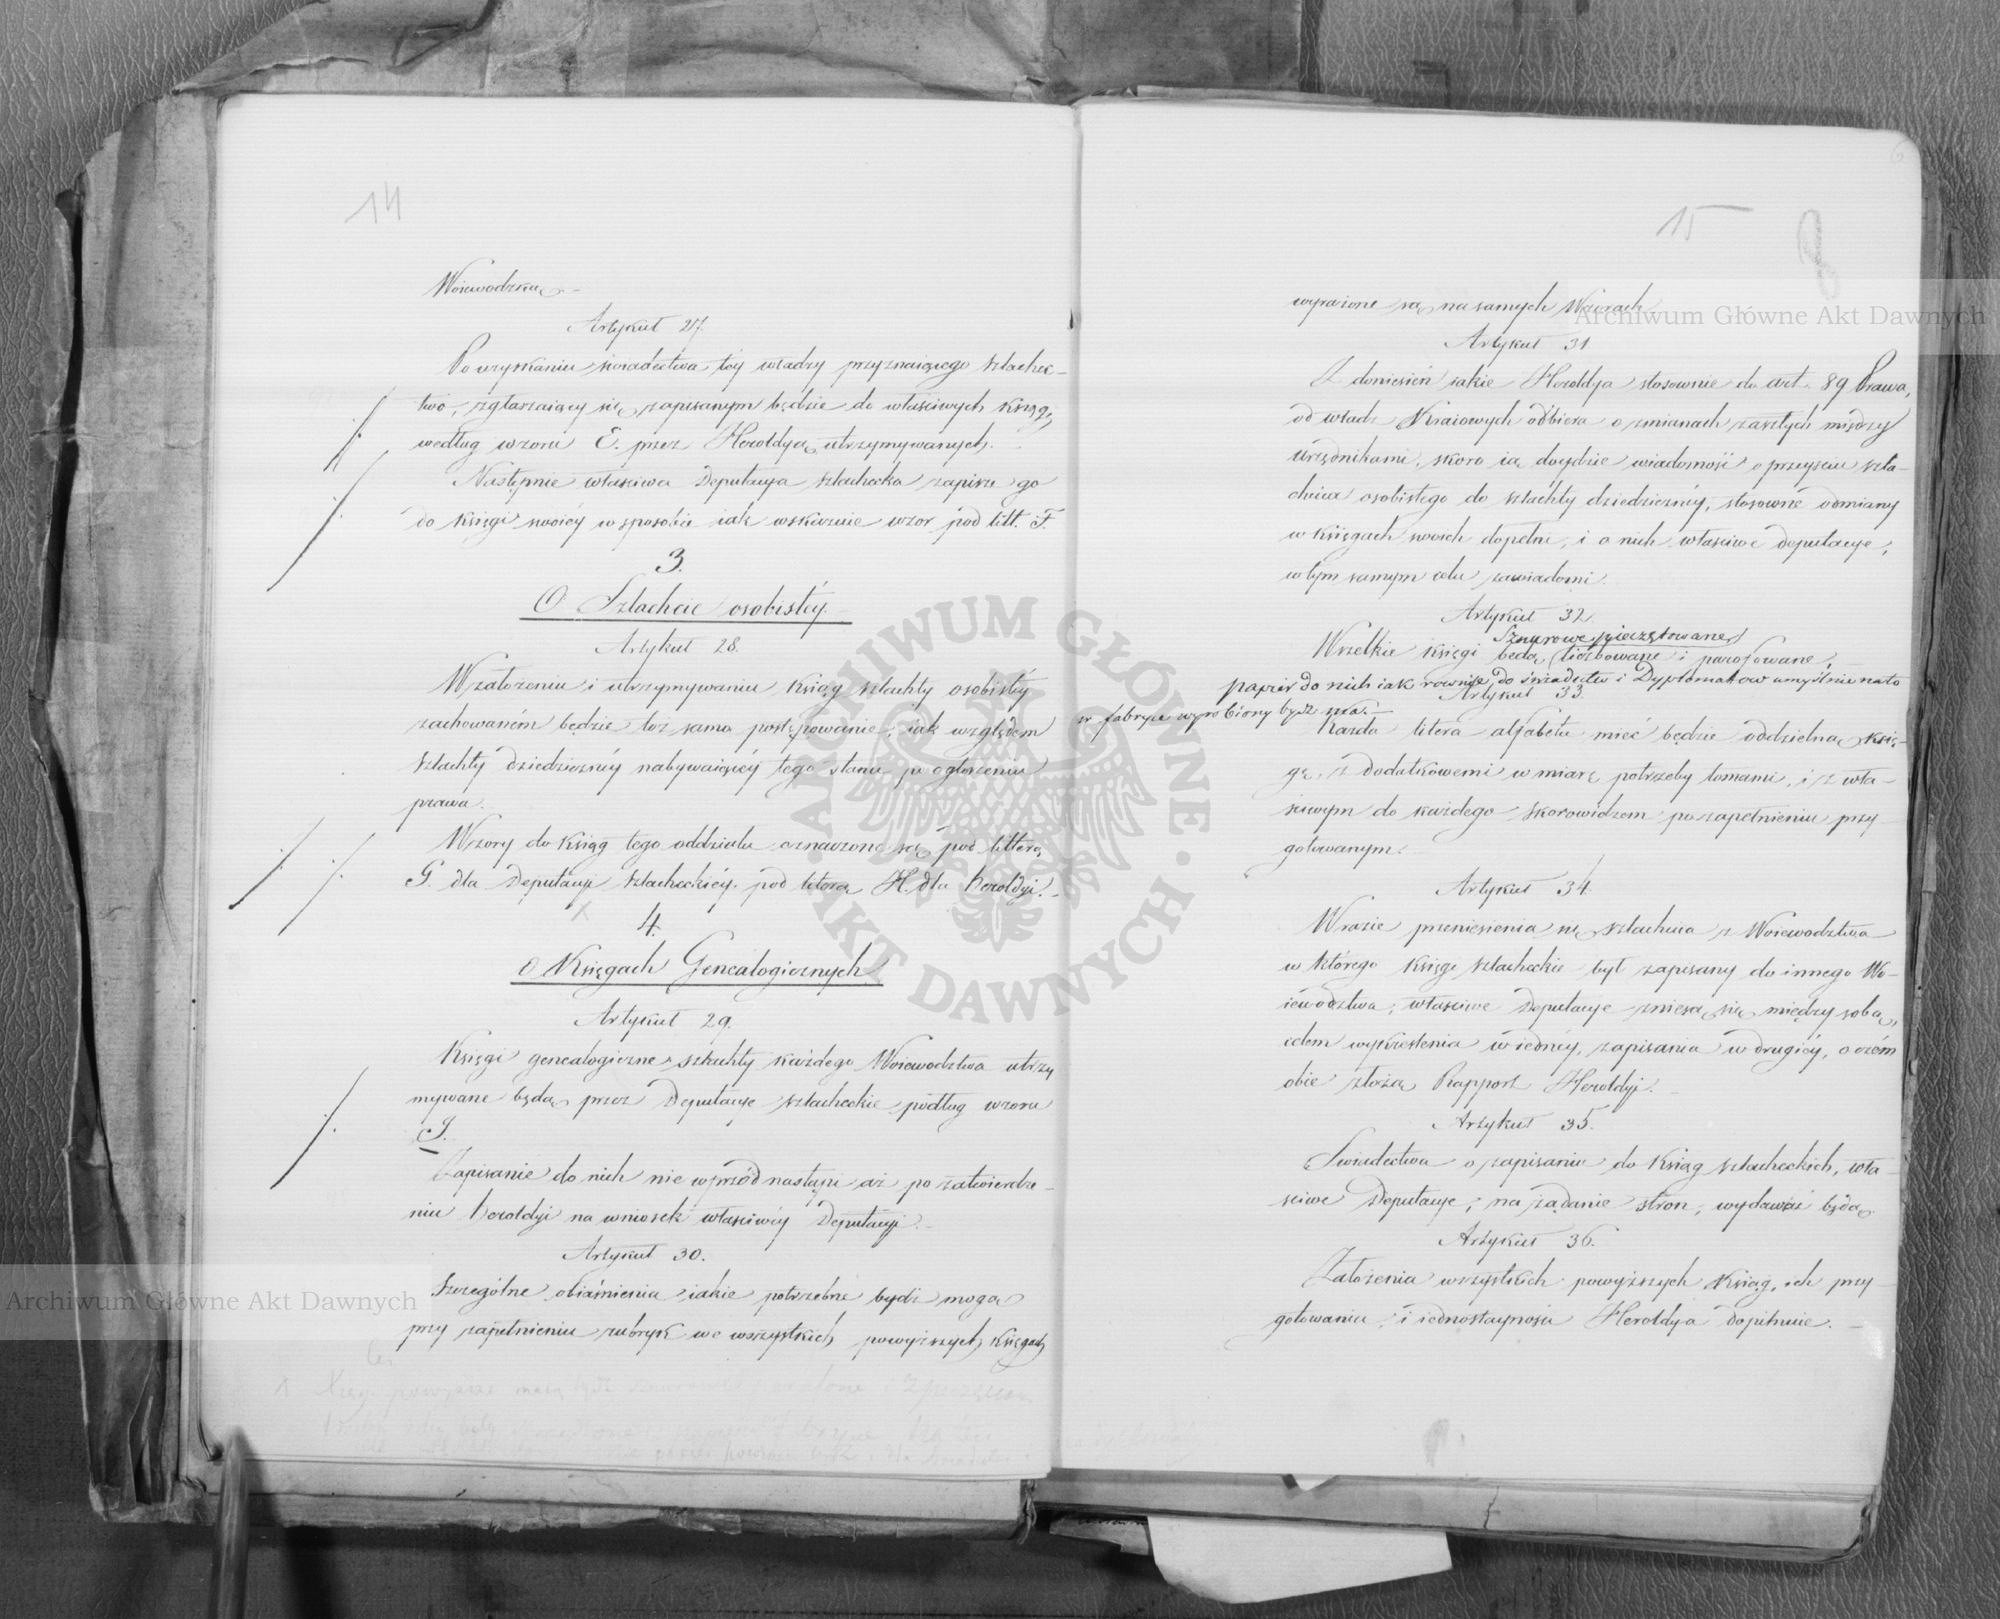 14
Woiewodzką.-
Artykuł 27.
Po uzyskaniu swiadectwa téy władzy przyznaiącego szlachec-
two, zgłaszaiący się, zapisanym będzie do właściwych Ksiąg,
według wzoru E. przez Heroldyą utrzymywanych.
Następnie właściwa Deputacya szlachecka zapisze go
do księgi swoiéy w sposobie iak wskazuie wzor pod litt. F.
3.
O Szlachcie osobistéy.
Artykuł 28.
W założeniu i utrzymywaniu Ksiąg szlachty osobistéy
zachowaném będzie toż samo postępowanie, iak względem
szlachty dziedzicznéy nabywaiącéy tego stanu po ogłoszeniu
prawa.
Wzory do Ksiąg tego oddziału oznaczone są pod litterą
G. dla Deputacyi szlacheckiéy. pod literą H. dla heroldyi.-
4.
O Księgach Genealogicznych
Artykuł 29.
Księgi genealogiczne szlachty każdego Woiewodztwa utrzy
mywane będą przez Deputacye szlacheckie podług wzoru
J.
Zapisanie do nich nie wprzód nastąpi aż po zatwierdze-
niu heroldyi na wniosek właściwéy Deputacyi.-
Artykuł 30.
Szczególne obiaśnienia iakie potrzebne bydź mogą
przy zapełnieniu rubryk we wszystkich powyższych księgach
15
wyrażone są na samych Wzorach
Artykuł 31
Z doniesień iakie Heroldya stosownie do art. 89 Prawa,
od władz Kraiowych odbiera o zmianach zaszłych między
urzędnikami, skoro ią doydzie wiadomość o przeyściu szla-
chcica osobistego do szlachty dziedzicznéy, stosowne odmiany
w księgach swoich dopełni, i o nich właściwe deputacye,
w tym samym celu zawiadomi.
Artykuł 32.
Sznurowe, pieczętowane,
Wszelkie księgi będą liczbowane i parafowane,
papier do nich iak równie do świadectw i Dyplomatow umyślnie na to
w fabryce wyrobiony bydź ma.-
Artykuł 33.
Każda litera alfabetu mieć będzie oddzielną księ-
gę, z dodatkowemi w miarę potrzeby tomami, i z wła-
ściwym do każdego skorowidzem po zapełnieniu przy-
gotowanym.
Artykuł 34.
W razie przeniesienia się szlachcica z Woiewodztwa
w którego księgi szlacheckie był zapisany do innego Wo-
iewodztwa, właściwe Deputacye zniosą się między sobą,
celem wykreślenia w iednéy, zapisania w drugiéy, o czém
obie złożą Rapport Heroldyi.-
Artykuł 35.
Swiadectwa o zapisaniu do Ksiąg szlacheckich, wła-
ściwe Deputacye, na żądanie stron, wydawać będą.
Artykuł 36.
Założenia wszystkich powyższych Ksiąg, ich przy-
gotowania, i iednostayności Heroldya dopilnuie.-
Archiwum Główne Akt Dawnych
Archiwum Główne Akt Dawnych
ARCHIWUM GŁÓWNE · AKT DAWNYCH ·